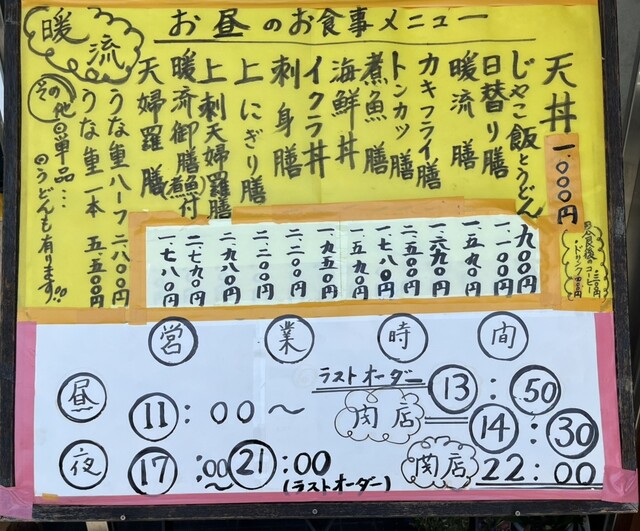 暖流
お昼のお食事メニュー
天丼 一.〇〇〇円
じゃこ飯とうどん 九〇〇円
日替り膳 一.一〇〇円
暖流膳 一.五九〇円
カキフライ膳 一.六九〇円
トンカツ膳 一.五〇〇円
煮魚膳 一.七八〇円
海鮮丼 一.五九〇円
イクラ丼 一.九五〇円
刺身膳 二.二〇〇円
上にぎり膳 二.二〇〇円
上刺天婦羅膳 二.九八〇円
暖流御膳(煮魚)付 二.七九〇円
天婦羅膳 一.七八〇円
うな重ハーフ 二.八〇〇円
うな重一本 五.五〇〇円
その他単品…
うどんも有ります!!
食後のコーヒー
・ドリンク
営業時間
昼 11:00〜
ラストオーダー 13:50
閉店 14:30
夜 17:00〜21:00
(ラストオーダー)
閉店 22:00